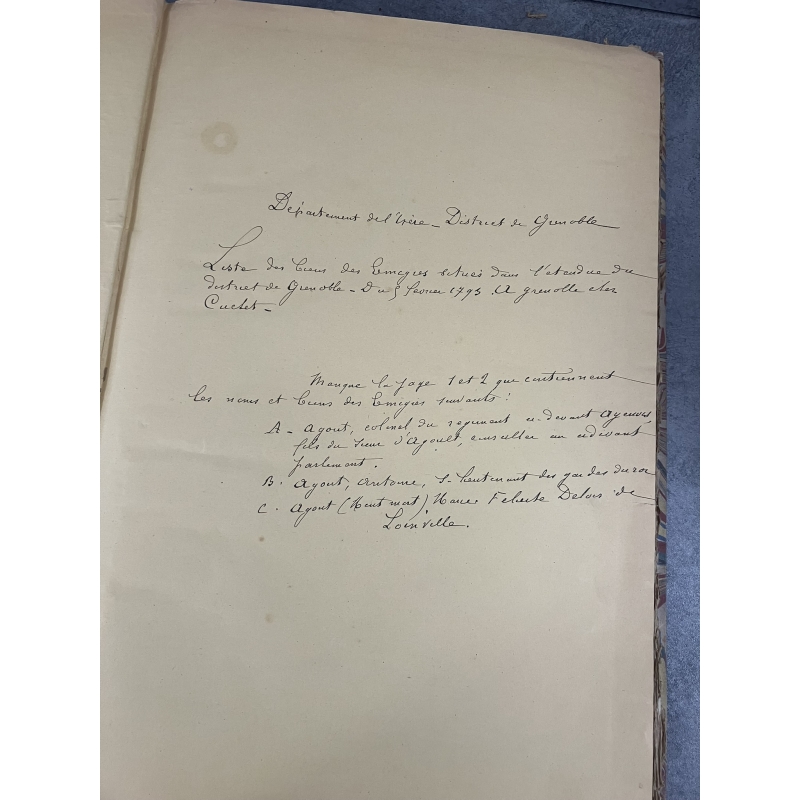 Département de l'Isère - District de Grenoble
Liste des biens des Emigrés situés dans l'étendue du
district de Grenoble - Du 5 février 1793. A Grenoble chez
Cuchet -
Manque la page 1 et 2 que contiennent
les noms et biens des Emigrés suivants :
A - Agout, colonel du régiment ci-devant Agenois,
fils du sieur d'Agoult, conseiller au cidevant
parlement.
B. Agout, Antoine, S-lieutenant des gardes du roi
C. Agout (Mont mort) Marie Felicité Delois de
Loinville.